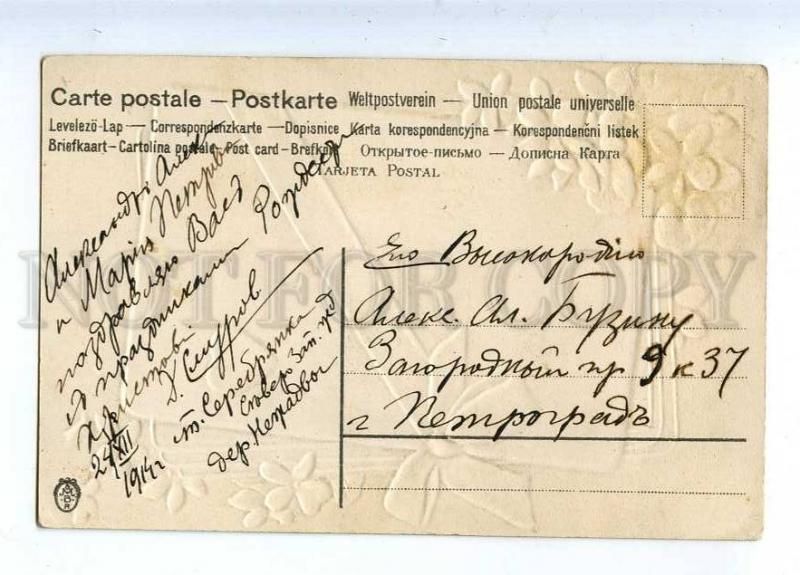 Carte postale — Postkarte Weltpostverein — Union postale universelle
Levelező-Lap — Correspondenzkarte — Dopisnice Karta korespondencyjna — Korespondenčni listek
Briefkaart — Cartolina postale Post card — Brefkort Открытое-письмо — Дописна Карта
TARJETA POSTAL
Александръ Алек
и Марія Петров
поздравляю Васъ
съ праздниками Рождест
Христова
Смуров
24/XII
1914 г
ст. Серебрянка
Северо Зап. жд
дер
Его Высокородію
Алекс. Ал. Бузину
Загородный пр 9 к 37
г Петроградъ
NOT FOR COPY